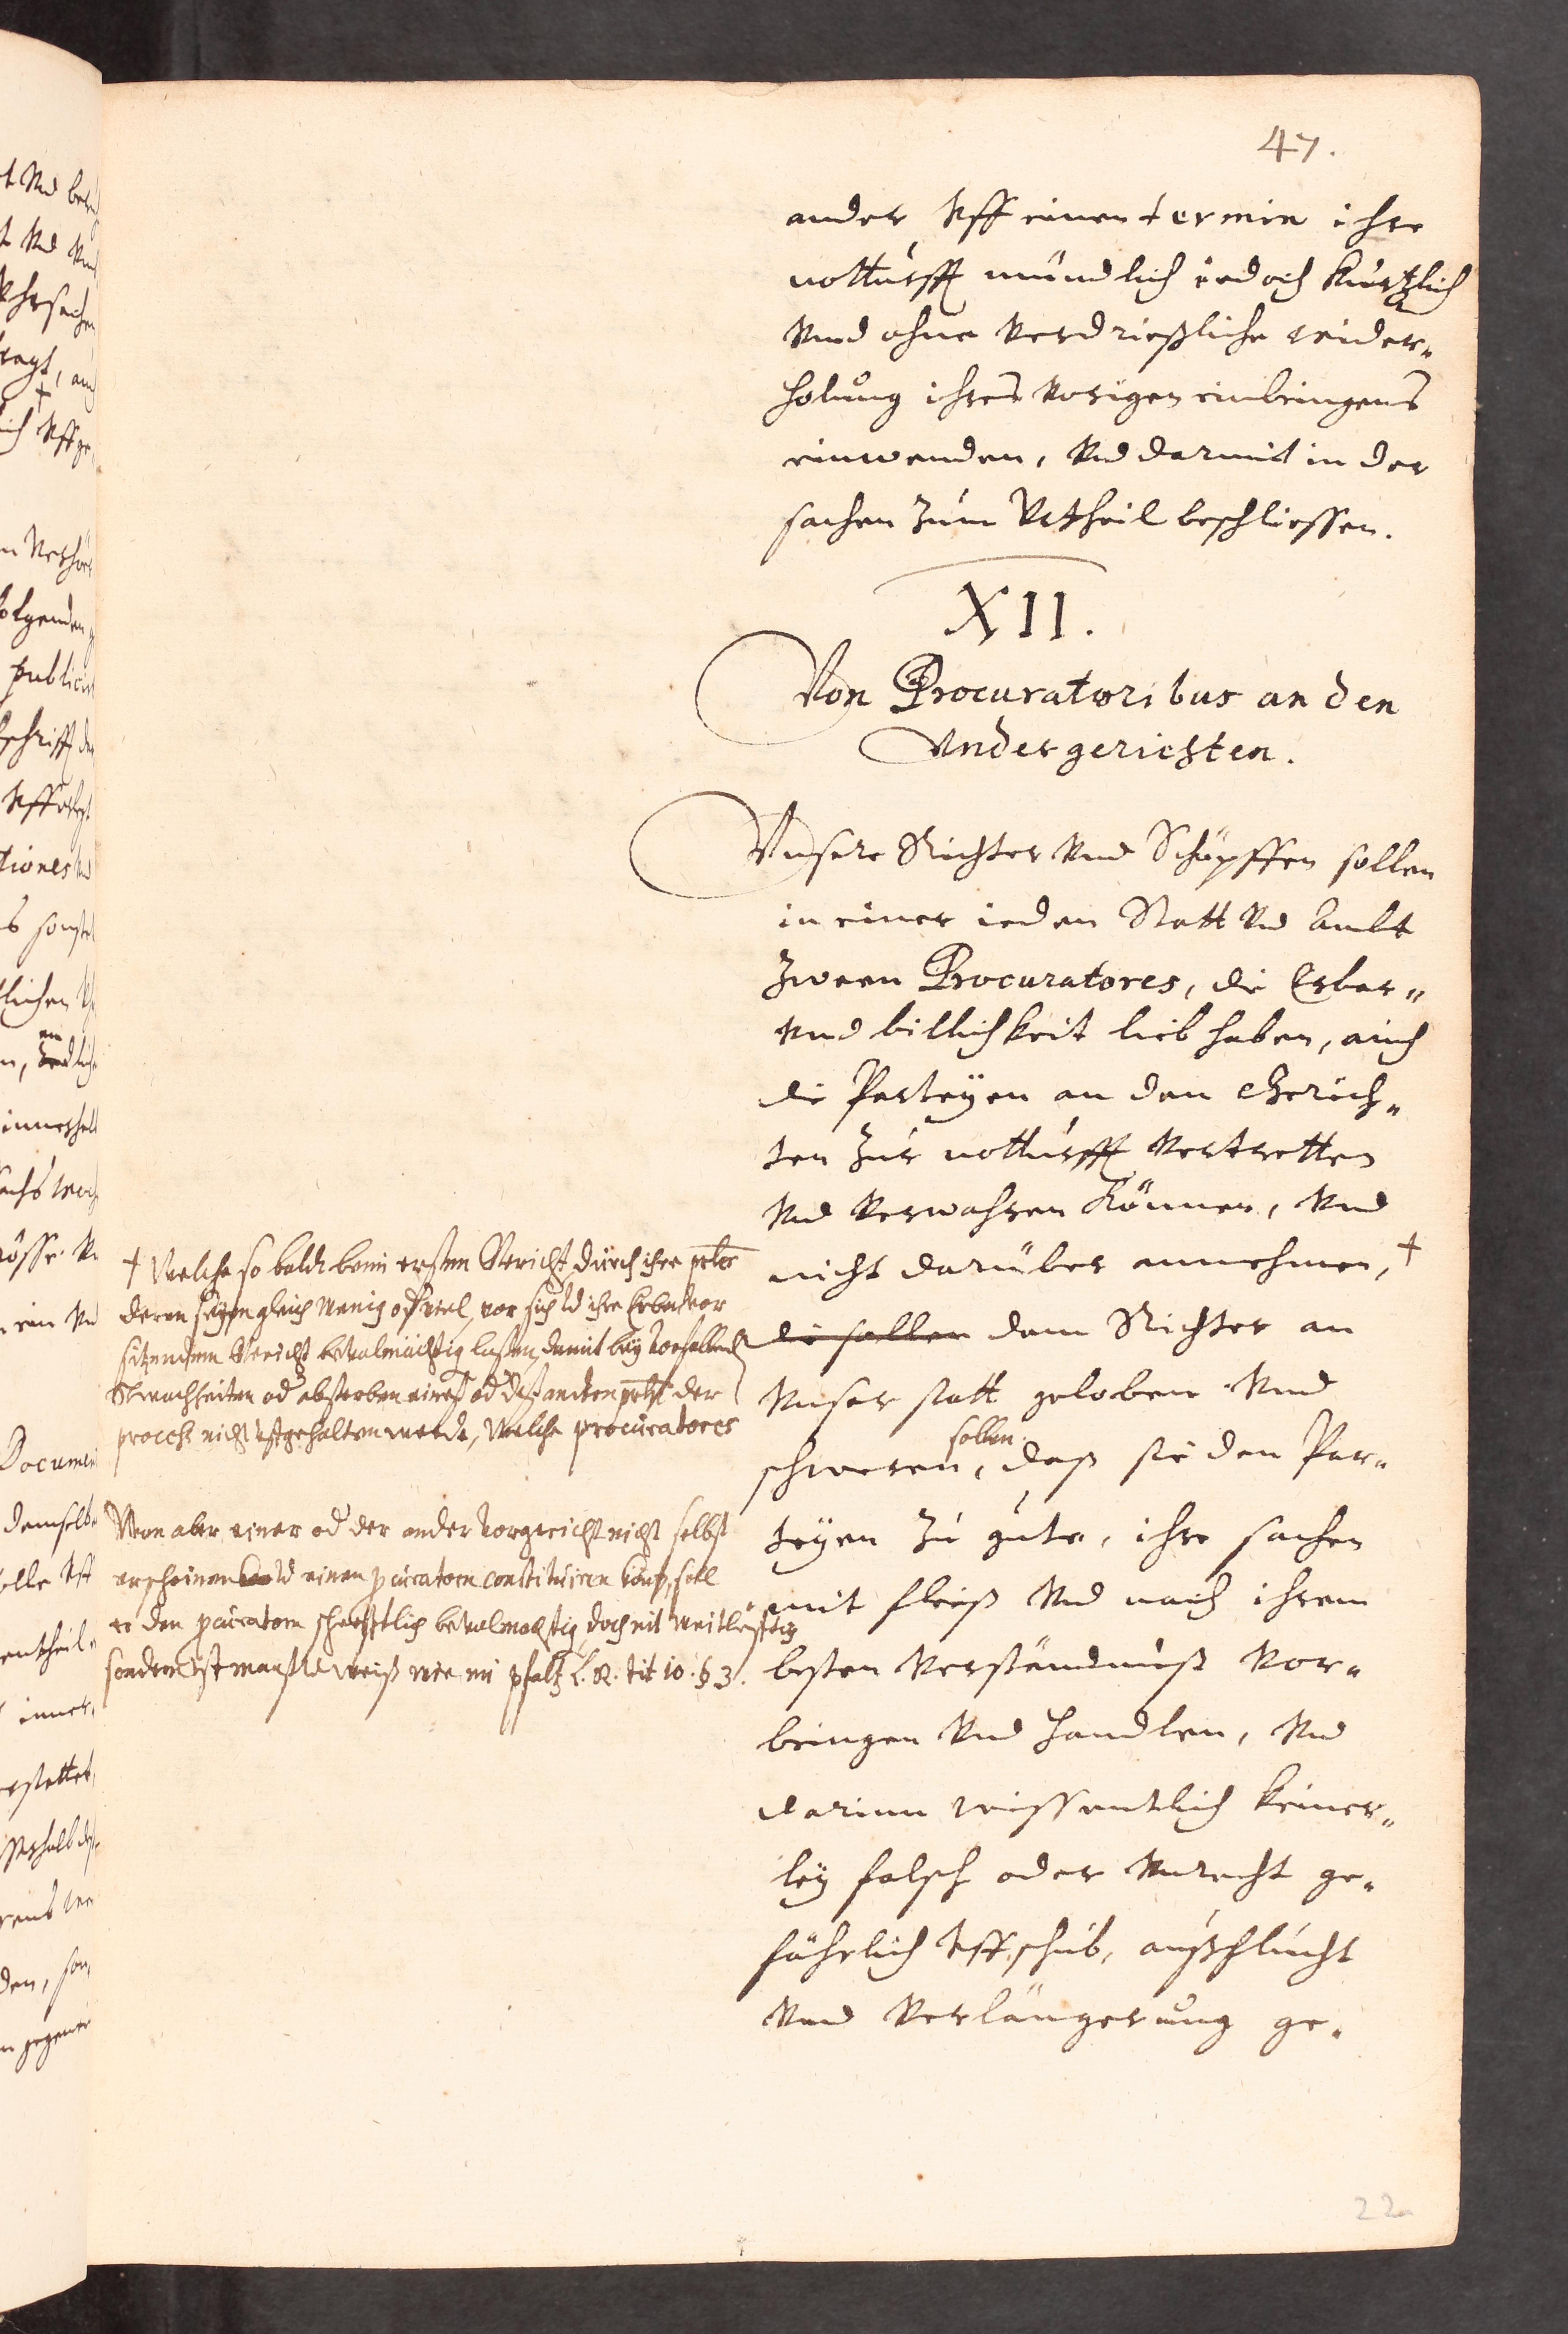 47.
ander Vff einen termin ihre
notturfft mündlich iedoch kurtzlich
Vnd ohne Verdrießliche wider„
holung ihres Vorigen einbringens
einwenden, Vnd darmit in der
sachen zum Vrtheil beschliessen.
XII.
Von Procuratoribus an den
Vndergerichten.
Vnsere Richter Vnd Schöpffen sollen
in einer ieden Statt Vnd Ambt
zween Procuratores, die Erbar„
Vnd billichkeit lieb haben, auch
die Parteyen an den Gerich„
ten zur notturfft Vertretten
Vnd Verwahren können, Vnd
nicht darüber annehmen, †
die sollen dem Richter an
Vnser statt geloben Vnd
sollen
schweren, daß sie den Par„
teyen zu gute, ihre sachen
mit fleiß Vnd nach ihrem
besten Verständnuß Vor„
bringen Vnd handlen, Vnd
darinn wissentlich keiner„
ley falsch oder Vnrecht ge„
fährlich Vffschub, außflucht
Vnd Verlängerung ge„
† Welche so baldt beim ersten Gericht durch ihre
deren seyen gleich wenig od viel, vor sich Vd ihre Erben vor
sitzendem Gericht bevolmächtig laßen, damit bey Vorfallend
Schwachheiten od absterben eines od deß andern der
process nicht Vffgehalten werde, Welche procuratores
Wan aber einer od der ander Vor gericht nicht selbst
erscheinen Vd einen pcuratorn constituiren könt, soll
er den pcuratorn schrifftlich bevolmechtig, doch nit weitleüfftig
sondern vff maß Vd weiß wie im pfaltz L. R. tit 10. § 3.
22